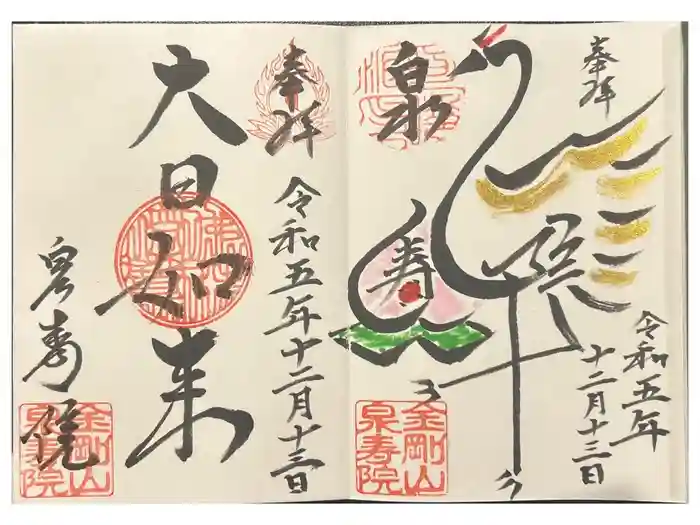 奉拝
令和五年十二月十三日
大日如来
泉寿院
金剛山
泉寿院
奉拝
令和五年
十二月十三日
泉
寿
院
金剛山
泉寿院